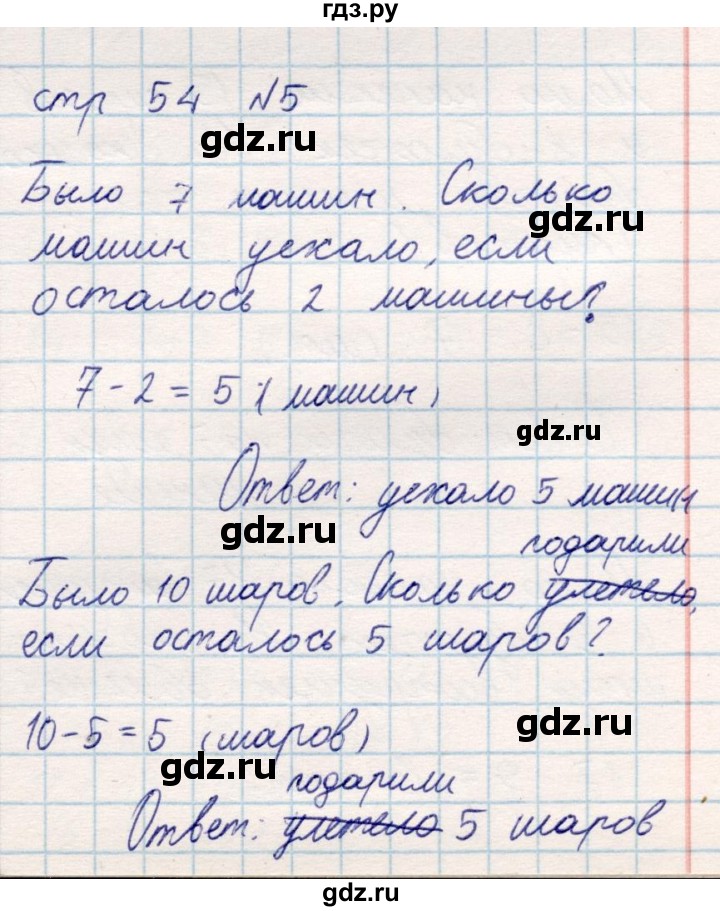 гдз.ру
стр 54 №5
gdz.ru
Было 7 машин. Сколько
gdz.ru
машин уехало, если
осталось 2 машины?
7-2=5 (машин)
gdz.ru
Ответ: уехало 5 машин
gdz.ru
подарили
Было 10 шаров. Сколько улетело,
если осталось 5 шаров?
10-5=5 (шаров)
gdz.ru
gdz.ru
подарили
Ответ: улетело 5 шаров
gdz.ru